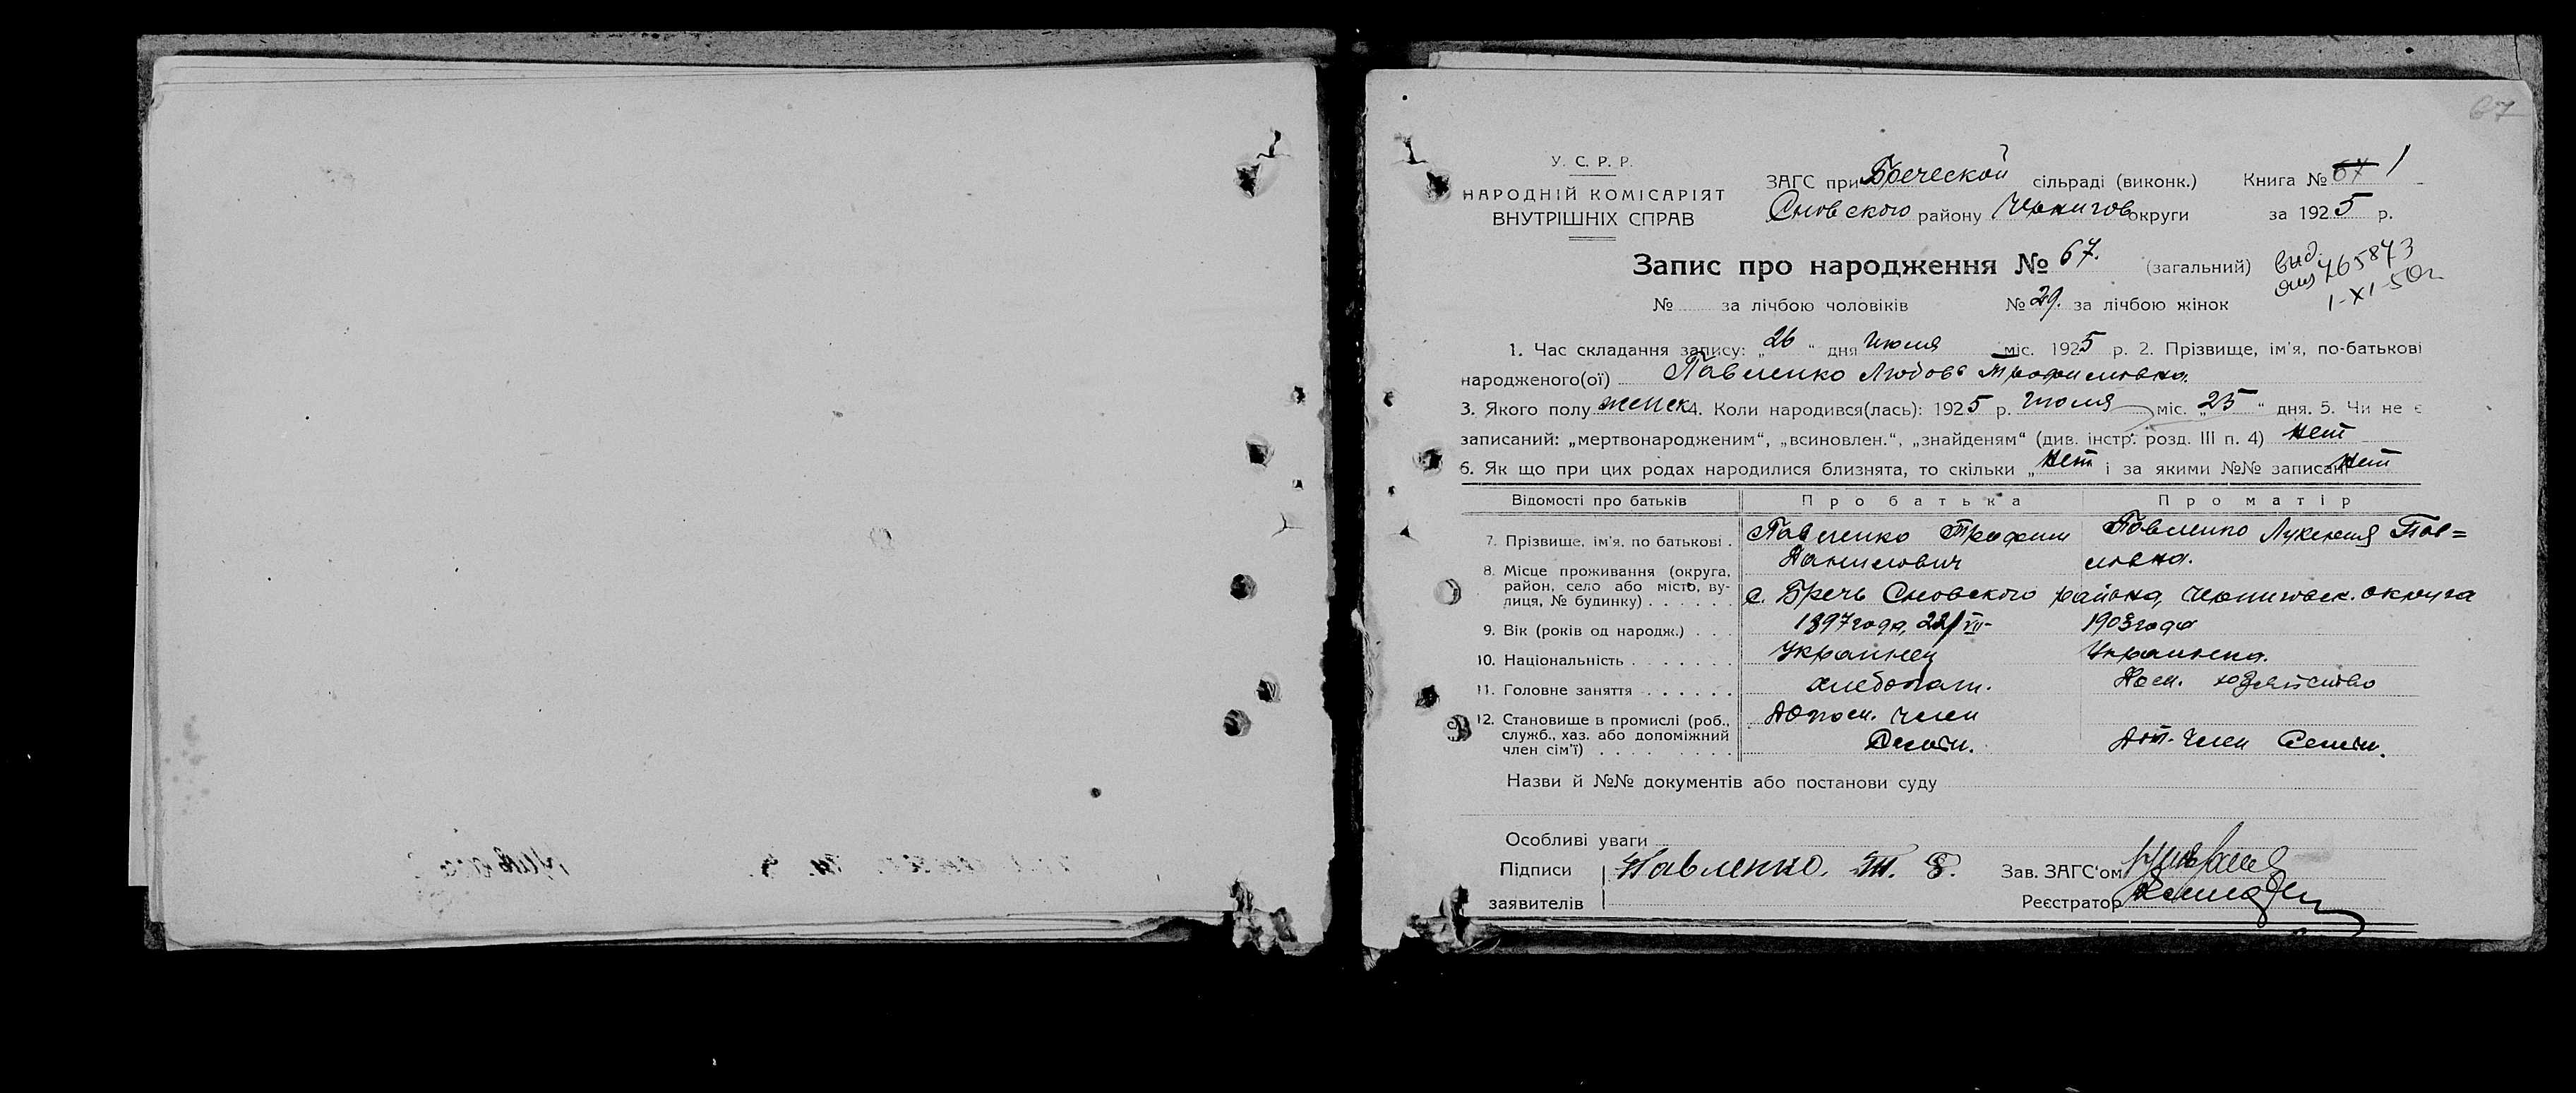 67
У. С. Р. Р.
НАРОДНІЙ КОМІСАРІЯТ
ВНУТРІШНІХ СПРАВ
ЗАГС при Бреческой сільраді (виконк.) Книга № 67 1
Сновского району Чернигов округи за 1925 р.
Запис про народження № 67. (загальний)
выд. 765873
1-XI-50г
№ за лічбою чоловіків № 29. за лічбою жінок
1. Час складання запису: „26“ дня Июля міс. 1925 р. 2. Прізвище, ім'я, по-батькові
народженого(ої) Павленко Любовь Трофимовна.
3. Якого полу женск 4. Коли народився(лась): 1925 р. Июля міс. „25“ дня. 5. Чи не є
записаний: „мертвонародженим“, „всиновлен.“, „знайденям“ (див. інстр. розд. III п. 4) нет
6. Як що при цих родах народилися близнята, то скільки „нет і за якими №№ записані нет
Відомості про батьків Про батька Про матір
7. Прізвище, ім'я, по батькові . Павленко Трофим Павленко Лукения Пав=
Данилович ловна.
8. Місце проживання (округа,
район, село або місто, ву-
лиця, № будинку) . . . . . . с. Бречь Сновского района, Черниговск. округа
9. Вік (років од народж.) . . . 1897 года, 22/VII 1903 года
10. Національність . . . . . . . Украинец Украинка.
11. Головне заняття . . . . . . хлебопаш. Дом. хозяйство
12. Становище в промислі (роб.,
служб., хаз. або допоміжний
член сім'ї) . . . . . . . . . Допом. член
Семьи. Доп. Член Семьи.
Назви й №№ документів або постанови суду
Особливі уваги
Підписи Павленко. Т. Зав. ЗАГС'ом
заявителів Реєстратор